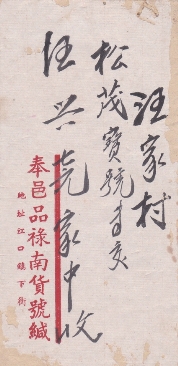 汪家村
松茂寶號 才交
汪兴亮家中收
奉邑品祿南貨號緘
地址江口鎮下街